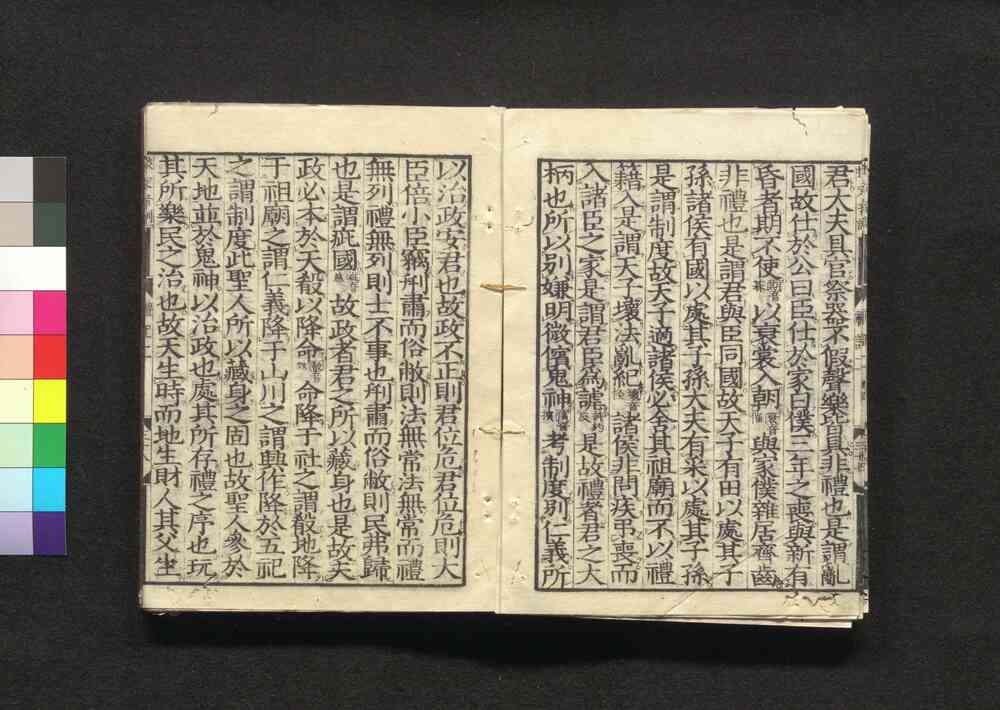 君大夫具官祭器不假聲樂皆具非禮也是謂亂
國故仕於公曰臣仕於家曰僕三年之喪與新有
昏者期不使以衰裳入朝與家僕雜居齊齒
非禮也是謂君與臣同國故天子有田以處其子
孫諸侯有國以處其子孫大夫有采以處其子孫
是謂制度故天子適諸侯必舍其祖廟而不以禮
籍入是謂天子壞法亂紀諸侯非問疾吊喪而
入諸臣之家是謂君臣爲謔是故禮者君之大
柄也所以別嫌明微儐鬼神考制度別仁義所
以治政安君也故政不正則君位危君位危則大
臣倍小臣竊刑肅而俗敝則法無常法無常而禮
無列禮無列則士不事也刑肅而俗敝則民弗歸
也是謂疵國故政者君之所以藏身也是故夫
政必本於天殽以降命命降于社之謂殽地降
于祖廟之謂仁義降于山川之謂興作降於五祀
之謂制度此聖人所以藏身之固也故聖人參於
天地並於鬼神以治政也處其所存禮之序也玩
其所樂民之治也故天生時而地生財人其父生